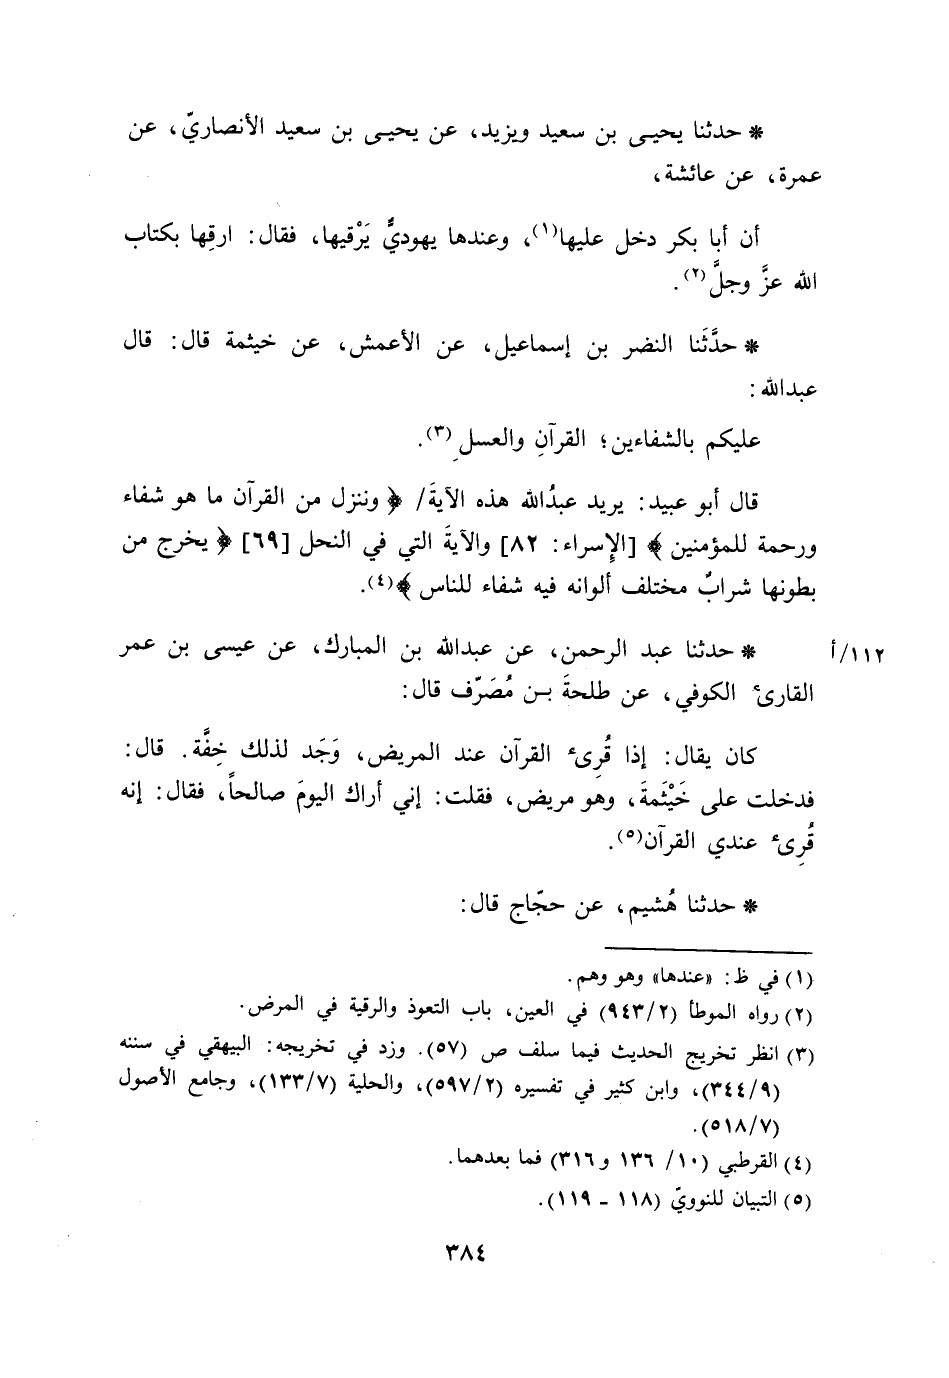 * حدثنا يحيـى بن سعيد ويزيد، عن يحيـى بن سعيد الأنصاريّ، عن
عمرة، عن عائشة،
أن أبا بكر دخل عليها(١)، وعندها يهوديٌّ يَرْقيها، فقال: ارقِها بكتاب
الله عزَّ وجلَّ(٢).
* حدَّثَنا النضر بن إسماعيل، عن الأعمش، عن خيثمة قال: قال
عبدالله:
عليكم بالشفاءين؛ القرآنِ والعسلِ(٣).
قال أبو عبيد: يريد عبدُالله هذه الآيةَ/ ﴿ وننزل من القرآن ما هو شفاء
ورحمة للمؤمنين ﴾ [الإسراء: ٨٢] والآيةَ التي في النحل [٦٩] ﴿ يخرج من
بطونها شرابٌ مختلف ألوانه فيه شفاء للناس ﴾(٤).
١١٢/أ * حدثنا عبد الرحمن، عن عبدالله بن المبارك، عن عيسى بن عمر
القارئ الكوفي، عن طلحةَ بـن مُصَرِّف قال:
كان يقال: إذا قُرِئ القرآن عند المريض، وَجَد لذلك خِفَّة. قال:
فدخلت على خَيْثَمةَ، وهو مريض، فقلت: إني أراك اليومَ صالحاً، فقال: إنه
قُرِئ عندي القرآن(٥).
* حدثنا هُشيم، عن حجّاج قال:
(١) في ظ: «عندها» وهو وهم.
(٢) رواه الموطأ (٩٤٣/٢) في العين، باب التعوذ والرقية في المرض.
(٣) انظر تخريج الحديث فيما سلف ص (٥٧). وزد في تخريجه: البيهقي في سننه
(٣٤٤/٩)، وابن كثير في تفسيره (٥٩٧/٢)، والحلية (١٣٣/٧)، وجامع الأصول
(٥١٨/٧).
(٤) القرطبي (١٠/ ١٣٦ و٣١٦) فما بعدهما.
(٥) التبيان للنوويّ (١١٨ ـ ١١٩).
٣٨٤